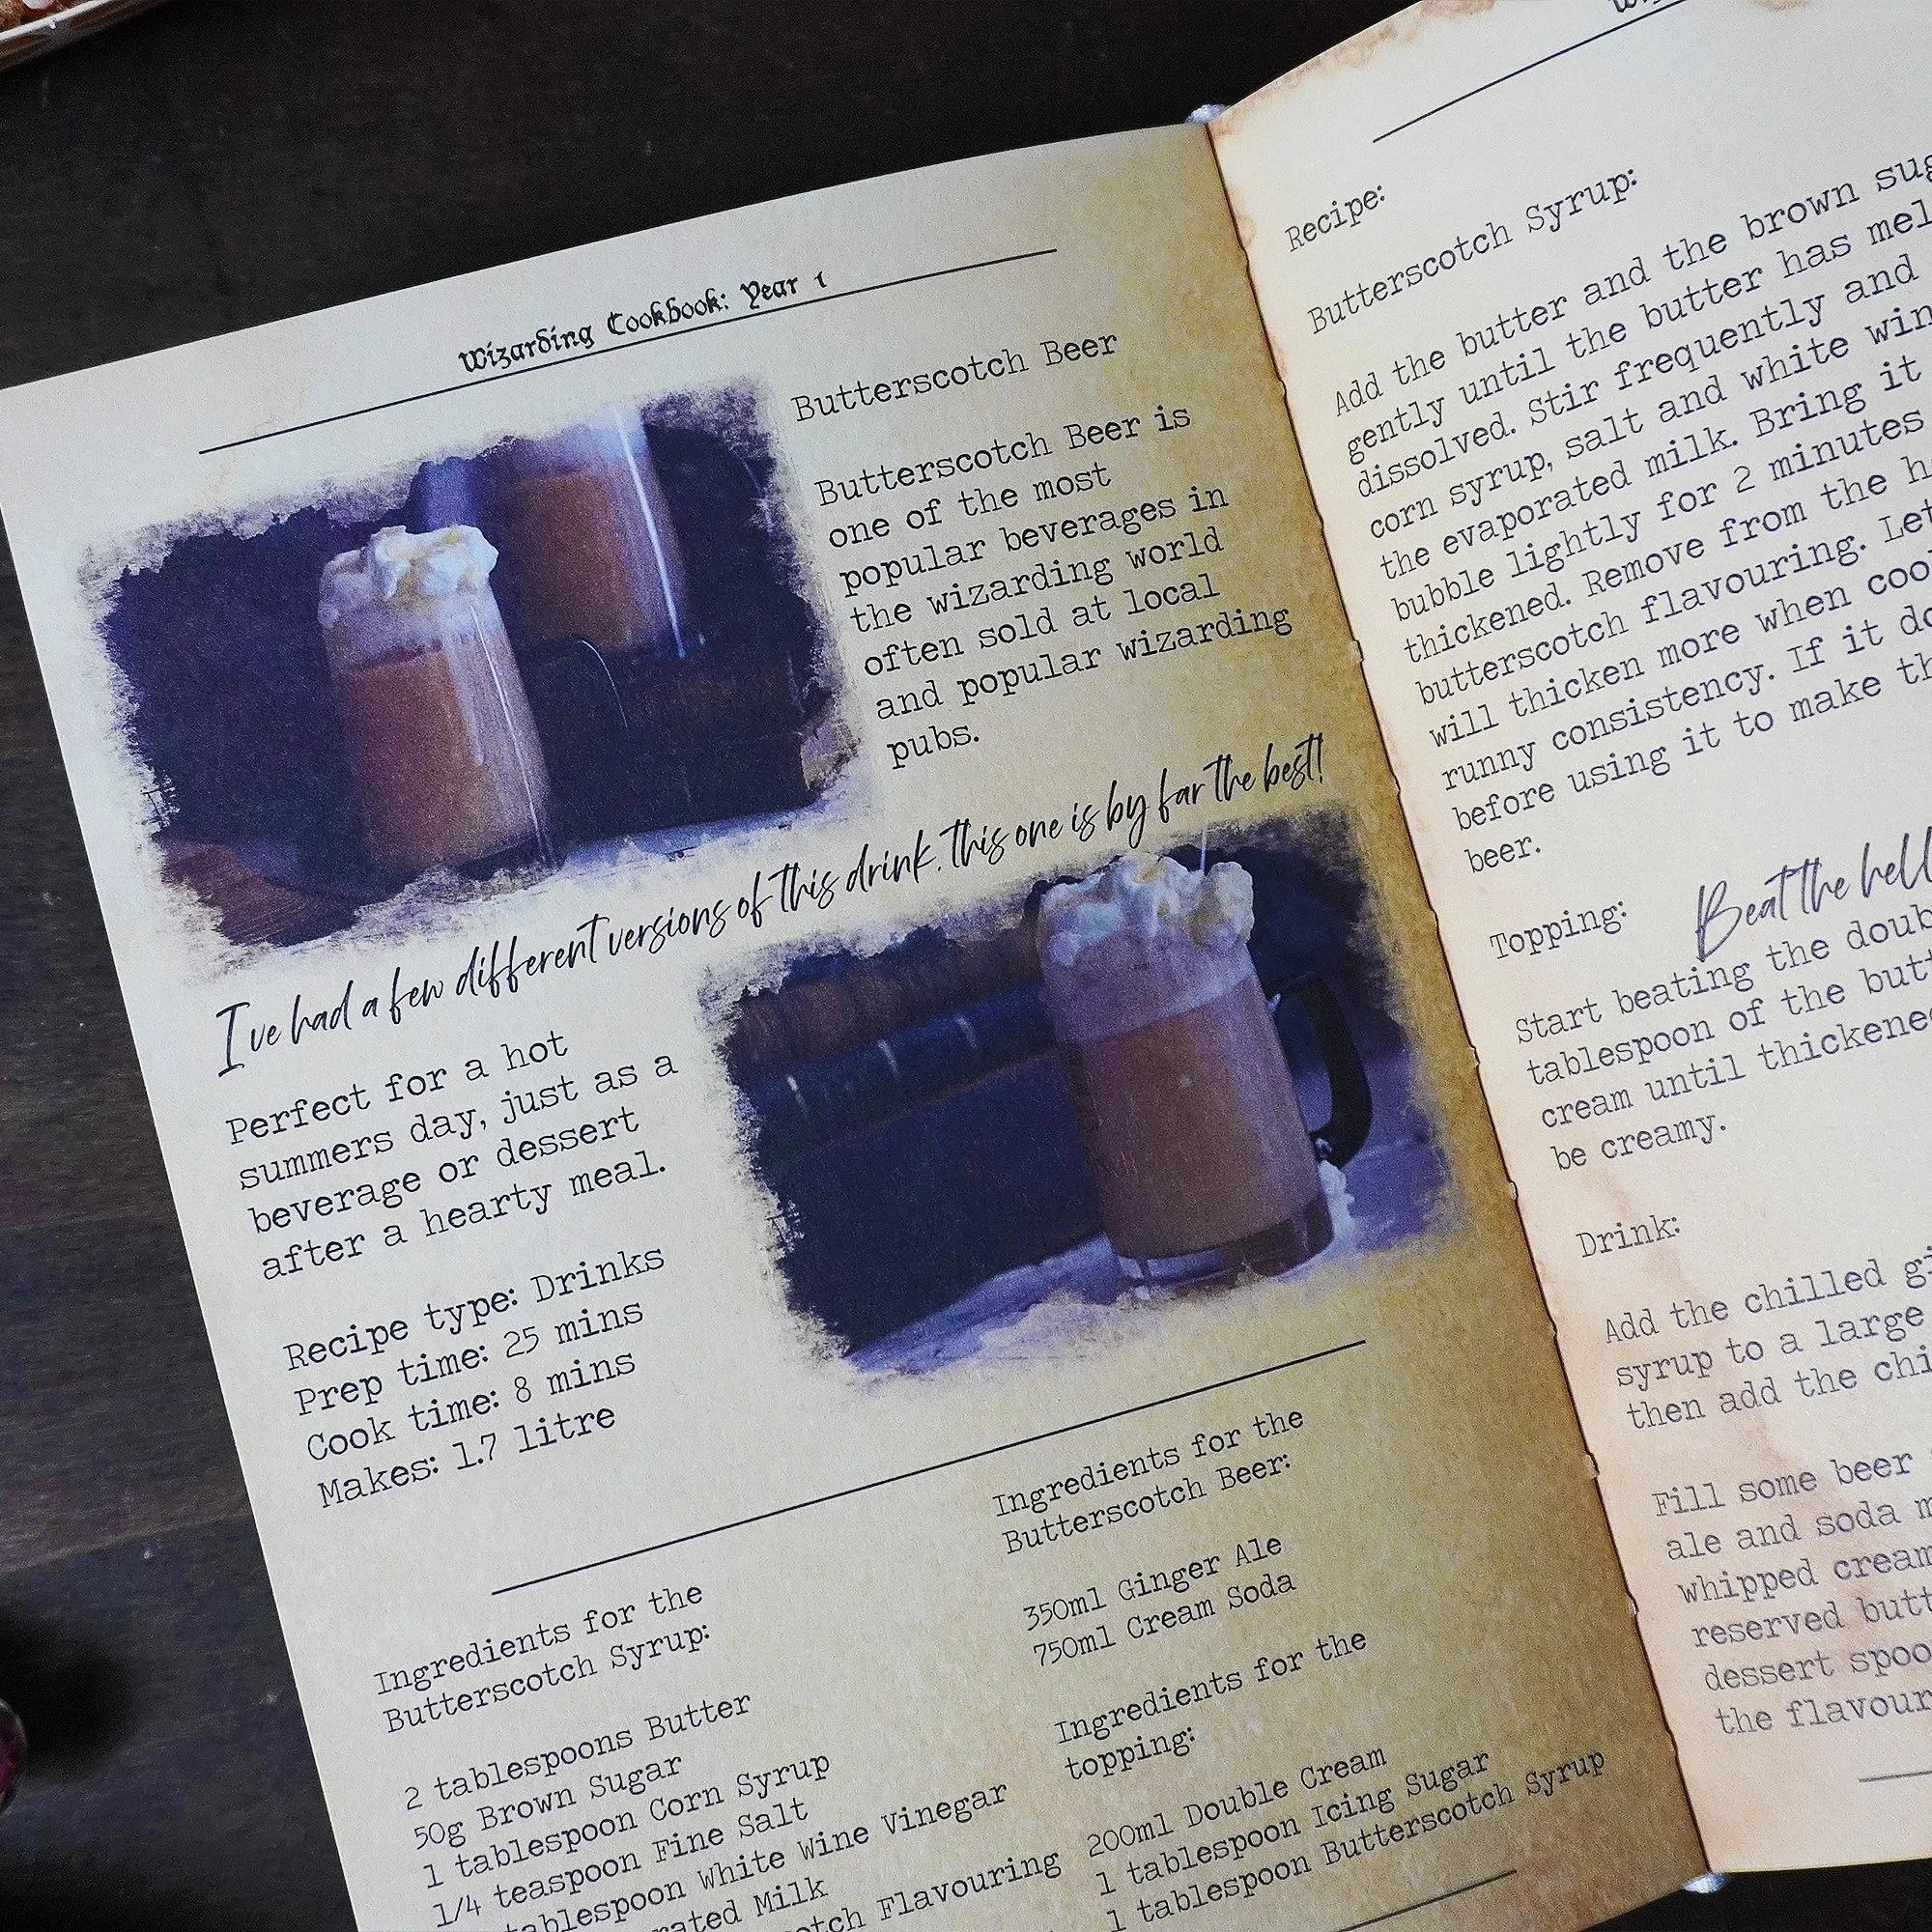 Wizarding Cookbook: Year 1
Butterscotch Beer
Butterscotch Beer is
one of the most
popular beverages in
the wizarding world
often sold at local
and popular wizarding
pubs.
I've had a few different versions of this drink. this one is by far the best!
Perfect for a hot
summers day, just as a
beverage or dessert
after a hearty meal.
Recipe type: Drinks
Prep time: 25 mins
Cook time: 8 mins
Makes: 1.7 litre
Ingredients for the
Butterscotch Syrup:
2 tablespoons Butter
50g Brown Sugar
1 tablespoon Corn Syrup
1/4 teaspoon Fine Salt
tablespoon White Wine Vinegar
Milk
Flavouring
Ingredients for the
Butterscotch Beer:
350ml Ginger Ale
750ml Cream Soda
Ingredients for the
topping:
200ml Double Cream
1 tablespoon Icing Sugar
1 tablespoon Butterscotch Syrup
Recipe:
Butterscotch Syrup:
Add the butter and the brown
gently until the butter has
dissolved. Stir frequently and
corn syrup, salt and white
the evaporated milk. Bring it
bubble lightly for 2 minutes
thickened. Remove from the
butterscotch flavouring.
will thicken more when
runny consistency. If it
before using it to make
beer.
Topping:
Beat the
Start beating the
tablespoon of the
cream until
be creamy.
Drink:
Add the chilled
syrup to a large
then add the
Fill some beer
ale and soda
whipped cream
reserved
dessert
the